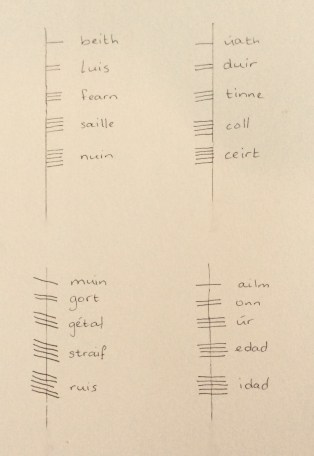 beith
luis
fearn
saille
nuin
úath
duir
tinne
coll
ceirt
muin
gort
gétal
straif
ruis
ailm
onn
úr
edad
idad